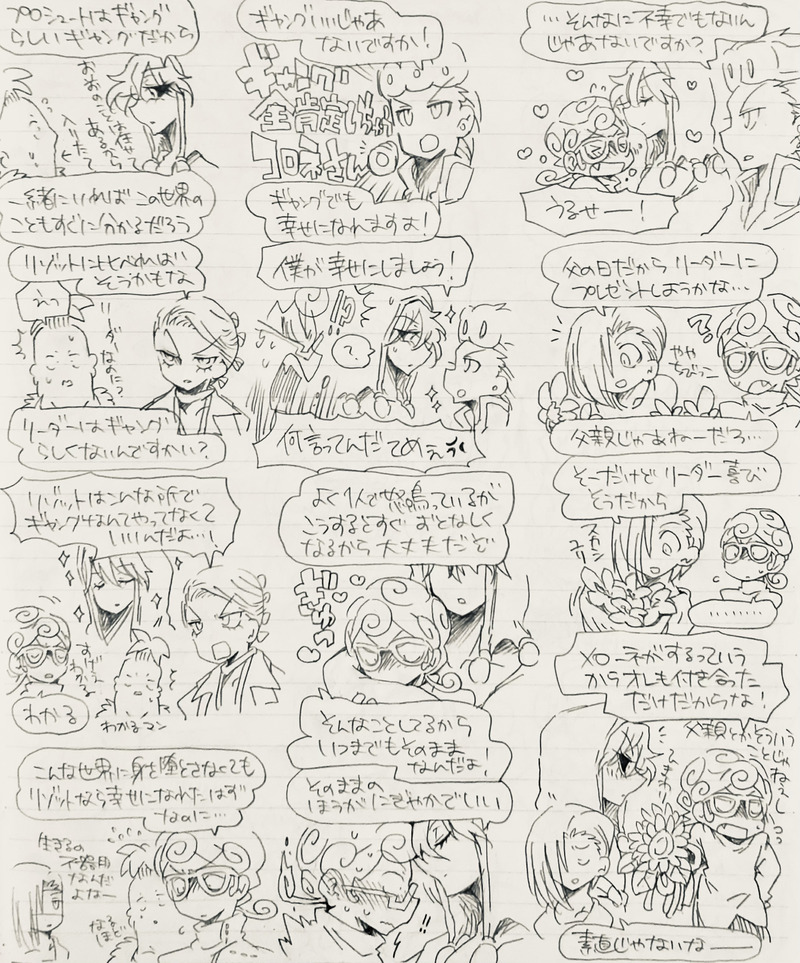 プロシュートはギャング
らしいギャングだから
おおのことは任せ
あるから
入りたて
一緒にいれば この世界の
こともすぐに分かるだろう
リゾットに比べれば
そうかもな
リーダーなのに?
リーダーはギャング
らしくないんですかい?
リゾットはこんな所で
ギャングなんてやってなくて
いいんだよ…!
すげぇ
わかる
わかる
わかるマン
こんな世界に身を堕とさなくても
リゾットなら幸せになれたはず
なのに…
生きるの
不器用
なんだ
よなー
なる
ほど
ギャングいいじゃあ
ないですか!
ギャング
全肯定しちゃう
コロネさん
ギャングでも
幸せになれますよ!
僕が幸せにしましょう!
?
何言ってんだてめぇ
よく1人で怒鳴っているが
こうするとすぐ おとなしく
なるから大丈夫だぞ
ぎゅっ
そんなことしてるから
いつまでもそのまま
なんだよ!
そのままの
ほうがにぎやかでいい
…そんなに不幸でもないん
じゃあないですか?
うるせー!
父の日だから リーダーに
プレゼントしようかな…
やや
ちびっこ
?
父親じゃあねーだろ…
そーだけどリーダー喜び
そうだから
スカシ
ユリ
…………
メローネがするっていう
からオレも付き合った
だけだからな!
父親とかそういう
ことじゃ
ねぇし
ひまわり
素直じゃないなー